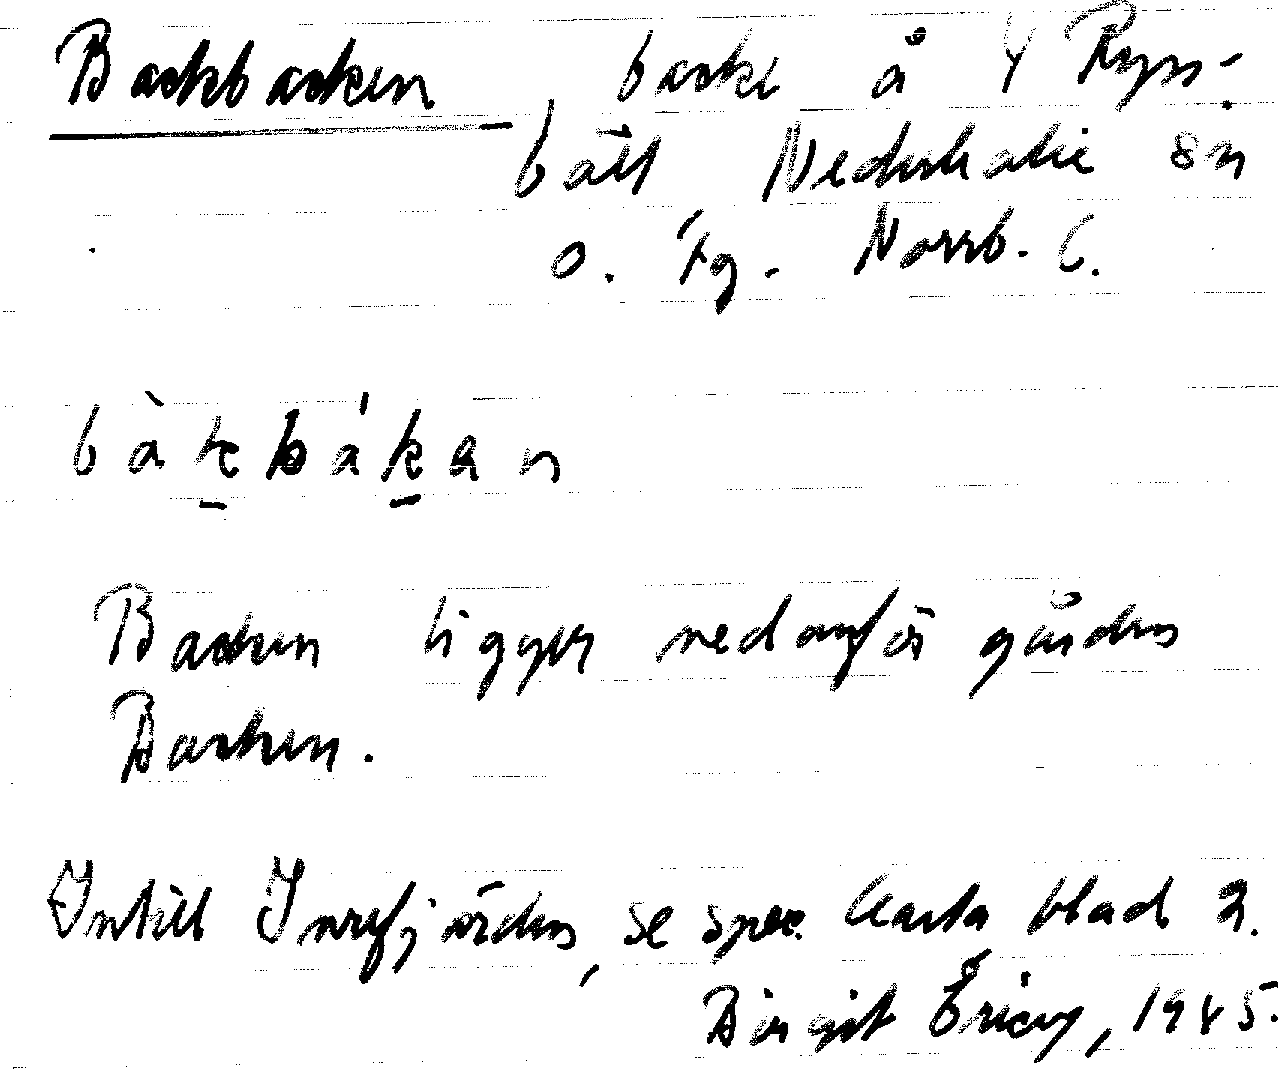 Backbacken, backe å Y Ryss-
bält, Nederkalix sn
o. tg. Norrb. l.
bàkbákan
Backen ligger nedanför gården
Backen.
Intill Inrefjärden, se spec. karta blad 2.
Birgit Öricy, 1945.